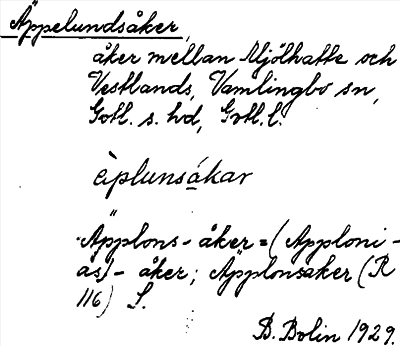 Äppelundsåker,
åker mellan Mjölhatte och
Vestlands, Vamlingbo sn,
Gotl. s. hd, Gotl. l.
èplunsákar
Äpplons-åker = (Apploni-
as)- åker; Äpplonsaker (R
116) S.
B. Bolin 1929.